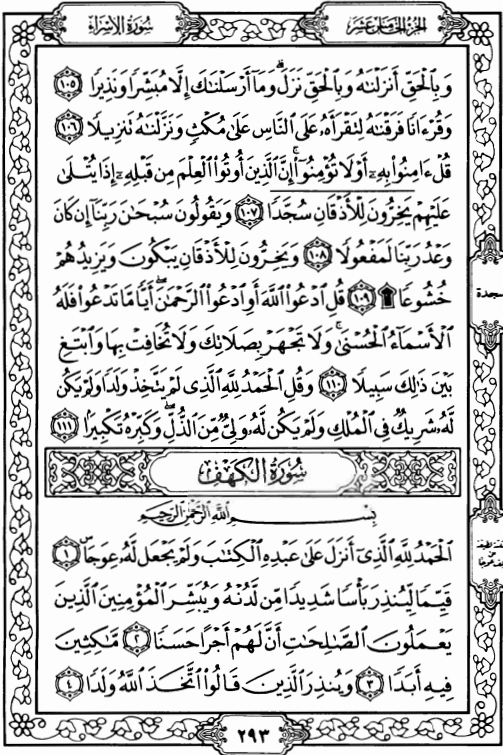 الجزء الخامس عشر
سورة الإسراء
وَبِالْحَقِّ أَنزَلْنَٰهُ وَبِالْحَقِّ نَزَلَ ۗ وَمَا أَرْسَلْنَٰكَ إِلَّا مُبَشِّرًا وَنَذِيرًا ١٠٥
وَقُرْءَانًا فَرَقْنَٰهُ لِتَقْرَأَهُۥ عَلَى النَّاسِ عَلَىٰ مُكْثٍ وَنَزَّلْنَٰهُ تَنزِيلًا ١٠٦
قُلْ ءَامِنُوا۟ بِهِۦٓ أَوْ لَا تُؤْمِنُوٓا۟ ۚ إِنَّ الَّذِينَ أُوتُوا۟ الْعِلْمَ مِن قَبْلِهِۦٓ إِذَا يُتْلَىٰ
عَلَيْهِمْ يَخِرُّونَ لِلْأَذْقَانِ سُجَّدًا ١٠٧ وَيَقُولُونَ سُبْحَٰنَ رَبِّنَآ إِن كَانَ
وَعْدُ رَبِّنَا لَمَفْعُولًا ١٠٨ وَيَخِرُّونَ لِلْأَذْقَانِ يَبْكُونَ وَيَزِيدُهُمْ
خُشُوعًا ۩ ١٠٩ قُلِ ادْعُوا۟ اللَّهَ أَوِ ادْعُوا۟ الرَّحْمَٰنَ ۖ أَيًّا مَّا تَدْعُوا۟ فَلَهُ
الْأَسْمَآءُ الْحُسْنَىٰ ۚ وَلَا تَجْهَرْ بِصَلَاتِكَ وَلَا تُخَافِتْ بِهَا وَابْتَغِ
بَيْنَ ذَٰلِكَ سَبِيلًا ١١٠ وَقُلِ الْحَمْدُ لِلَّهِ الَّذِى لَمْ يَتَّخِذْ وَلَدًا وَلَمْ يَكُن
لَّهُۥ شَرِيكٌ فِى الْمُلْكِ وَلَمْ يَكُن لَّهُۥ وَلِىٌّ مِّنَ الذُّلِّ ۖ وَكَبِّرْهُ تَكْبِيرًا ١١١
سُورَةُ الْكَهْفِ
بِسْمِ اللَّهِ الرَّحْمَٰنِ الرَّحِيمِ
الْحَمْدُ لِلَّهِ الَّذِىٓ أَنزَلَ عَلَىٰ عَبْدِهِ الْكِتَٰبَ وَلَمْ يَجْعَل لَّهُۥ عِوَجَا ۜ ١
قَيِّمًا لِّيُنذِرَ بَأْسًا شَدِيدًا مِّن لَّدُنْهُ وَيُبَشِّرَ الْمُؤْمِنِينَ الَّذِينَ
يَعْمَلُونَ الصَّٰلِحَٰتِ أَنَّ لَهُمْ أَجْرًا حَسَنًا ٢ مَّٰكِثِينَ
فِيهِ أَبَدًا ٣ وَيُنذِرَ الَّذِينَ قَالُوا۟ اتَّخَذَ اللَّهُ وَلَدًا ٤
سجدة
٢٩٣